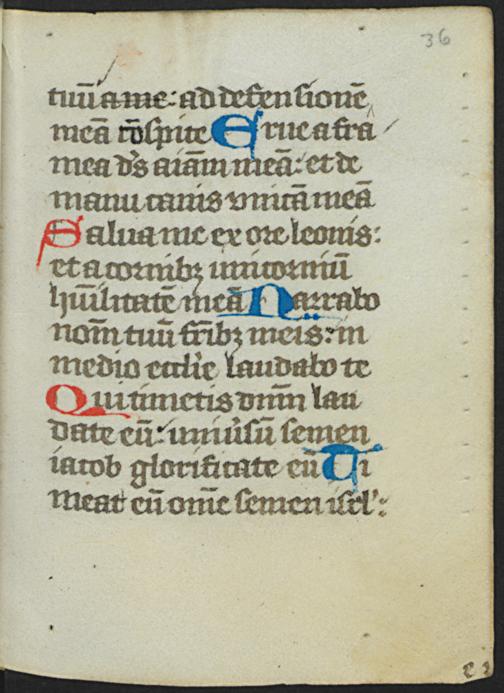 36
tuū a me: ad defensionē
meā ꝯspice Erue a fra
mea ds̄ aīam meā: et de
manu canis vnicā meā
Salua me ex ore leonis:
et a cornibꝫ unicorniū
hūilitatē meā Narrabo
nom̄ tuū fr̄ibꝫ meis: in
medio eccl̄ie laudabo te
Qui timetis dnm̄ lau
date eū: uniūsū semen
iacob glorificate eū Ti
meat eū om̄e semen isrl̓: